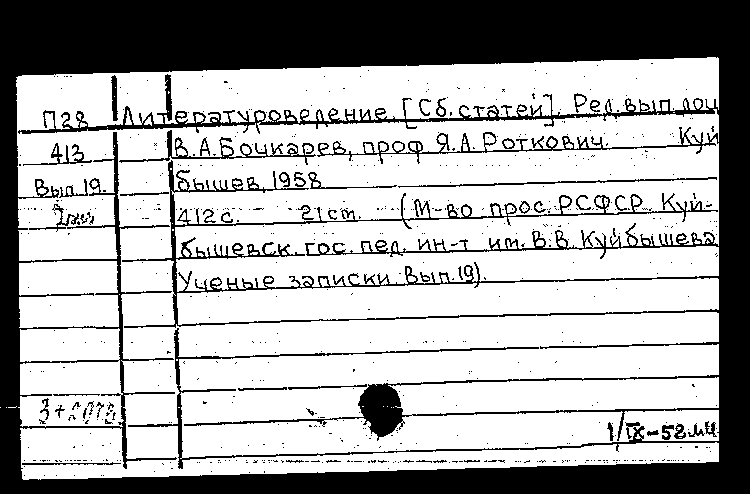 П28 Литературоведение. [Сб. статей]. Ред. вып. доц
413 В.А. Бочкарев, проф Я.А. Роткович. Куй
Вып. 19. бышев, 1958
412 с. 21 см. (М-во прос. РСФСР. Куй-
бышевск. гос. пед. ин-т им. В.В. Куйбышева
Ученые записки. Вып. 19).
1/IX-58